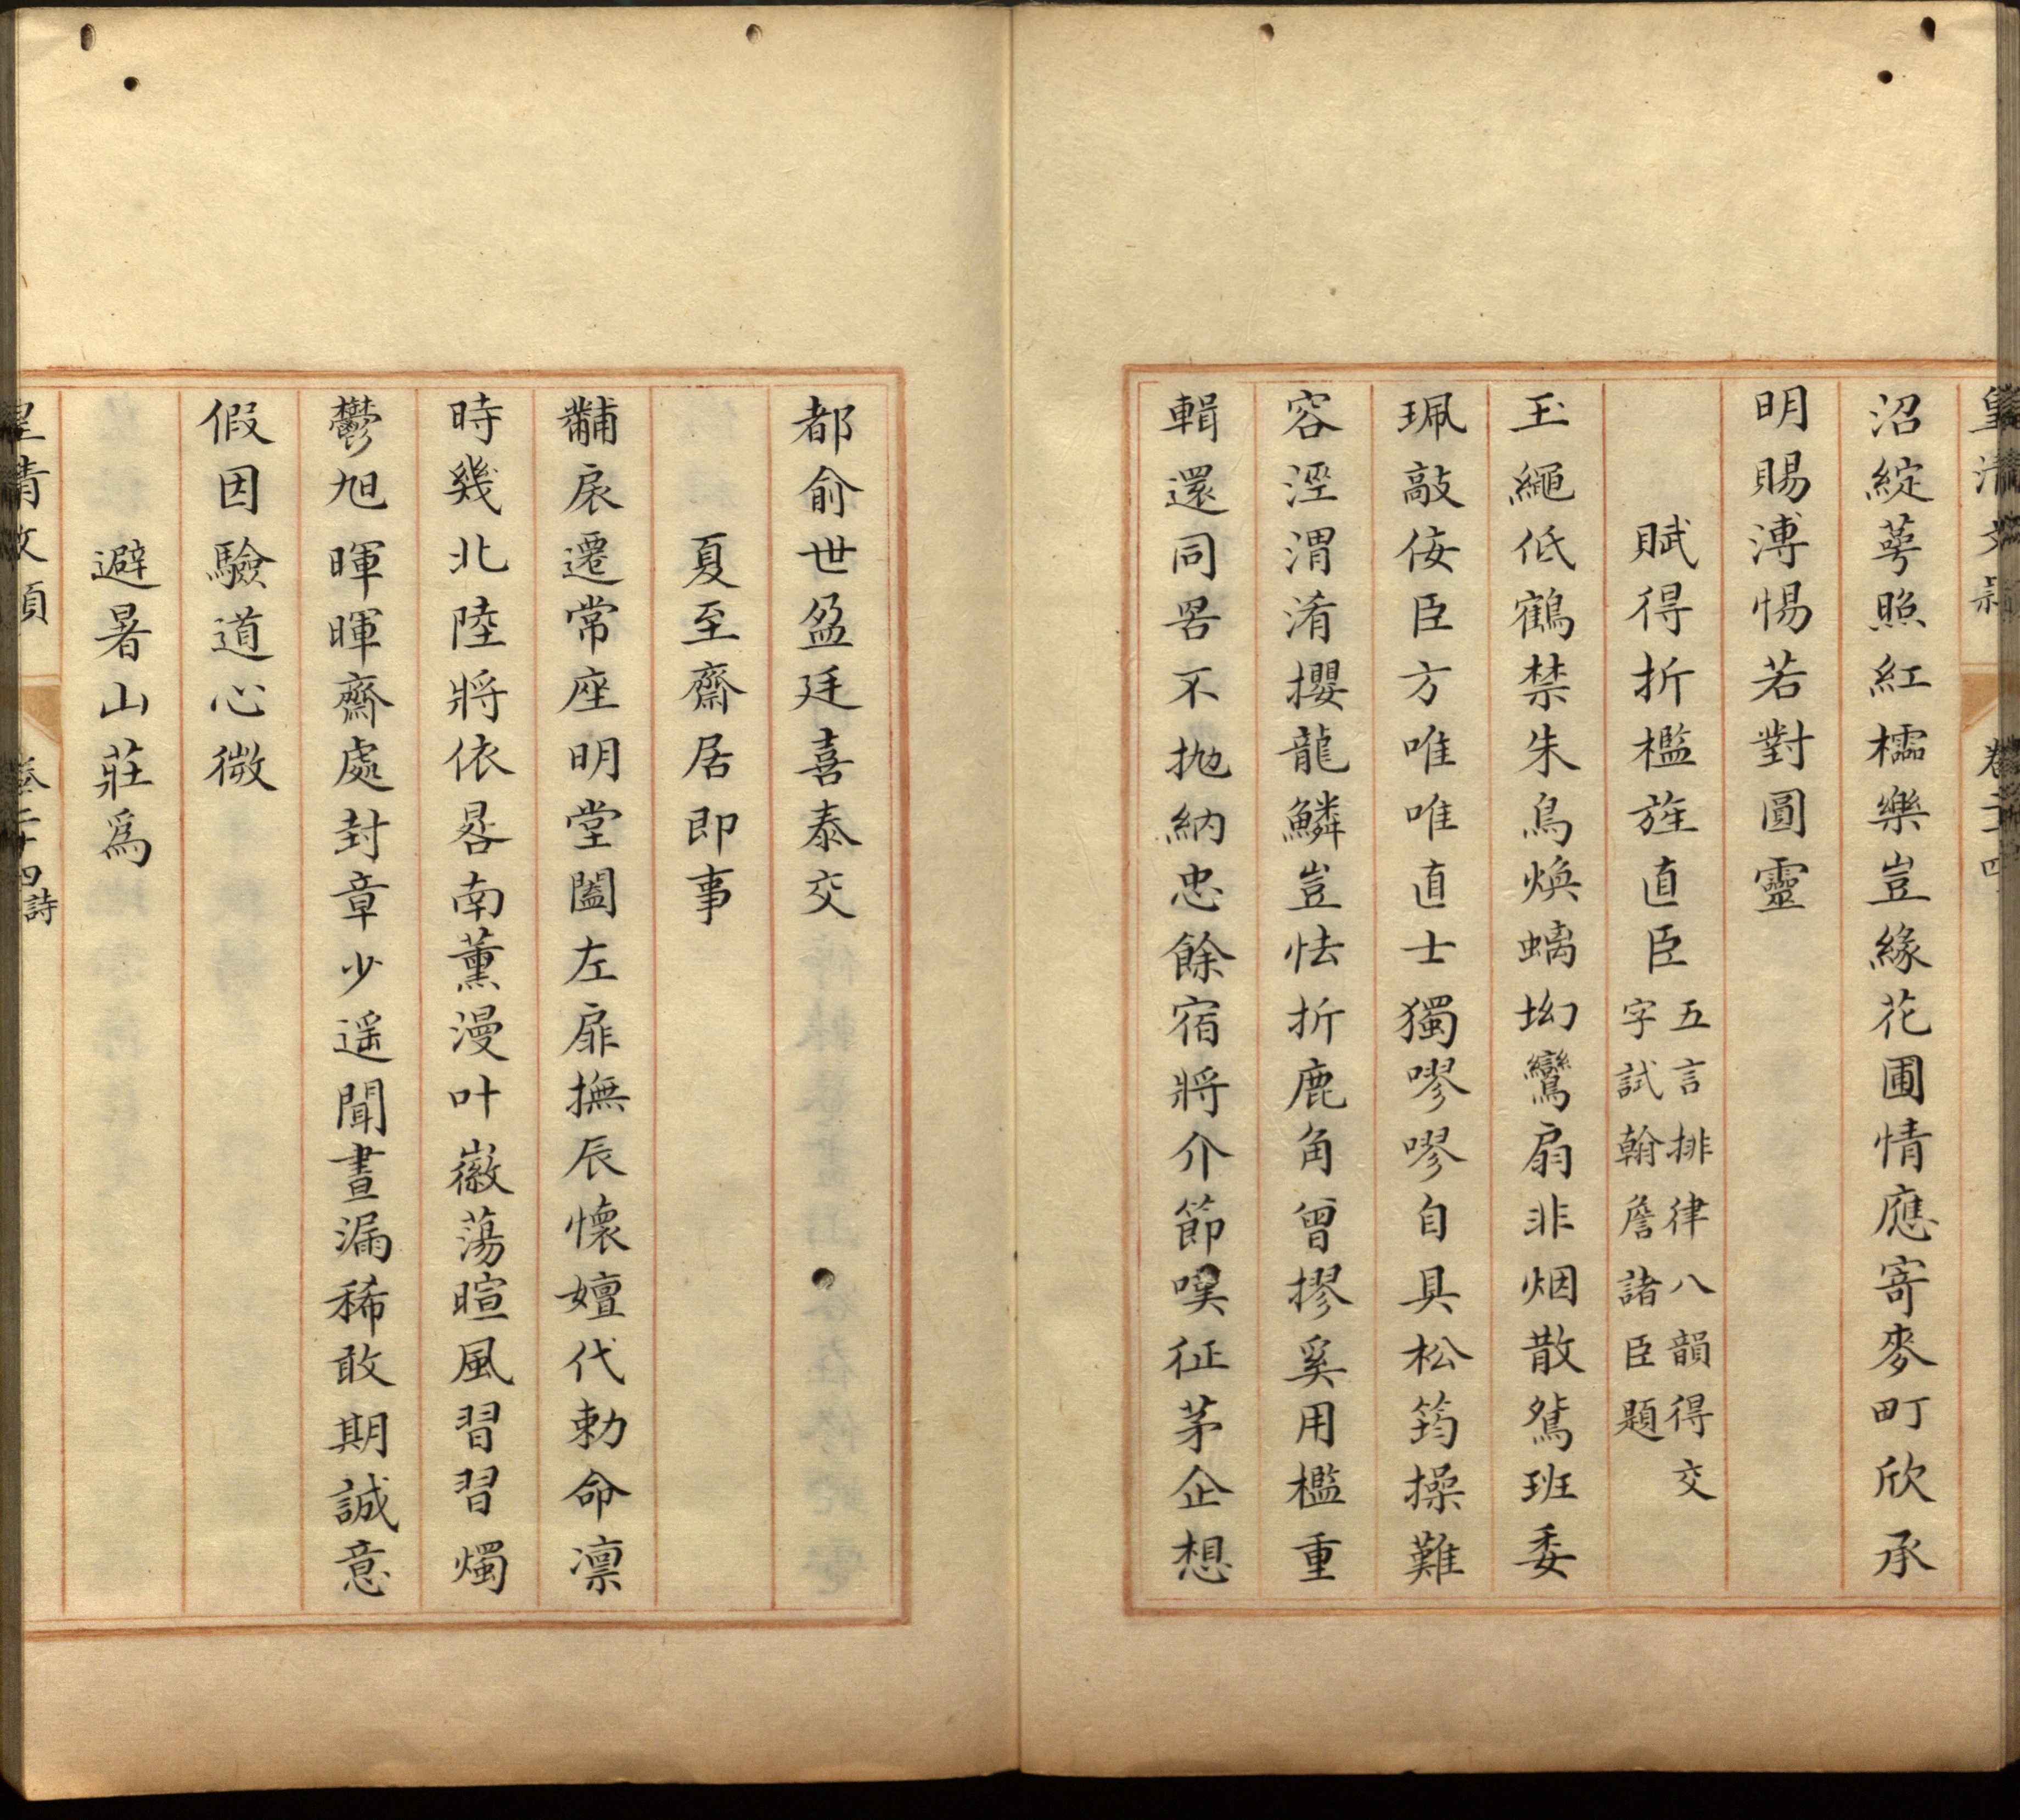 皇清文穎 卷二十四
沼綻萼照紅檽樂豈緣花圃情應寄麥町欣承
明賜溥惕若對圓靈
賦得折檻旌直臣五言排律八韻得交字試翰詹諸臣題
玉繩低鶴禁朱鳥煥螭坳鸞扇非烟散鵷班委
珮敲侫臣方唯唯直士獨嘐嘐自具松筠操難
容涇渭淆攖龍鱗豈怯折鹿角曾摎奚用檻重
輯還同罟不抛納忠餘宿將介節嘆征茅企想
都俞世盈廷喜泰交
夏至齋居即事
黼扆遷常座明堂闔左扉撫辰懷嬗代勅命凛
時幾北陸將依晷南薰漫叶徽蕩暄風習習燭
鬱旭暉暉齋處封章少遥聞晝漏稀敢期誠意
假因驗道心微
避暑山莊爲
皇清文穎 卷二十四詩